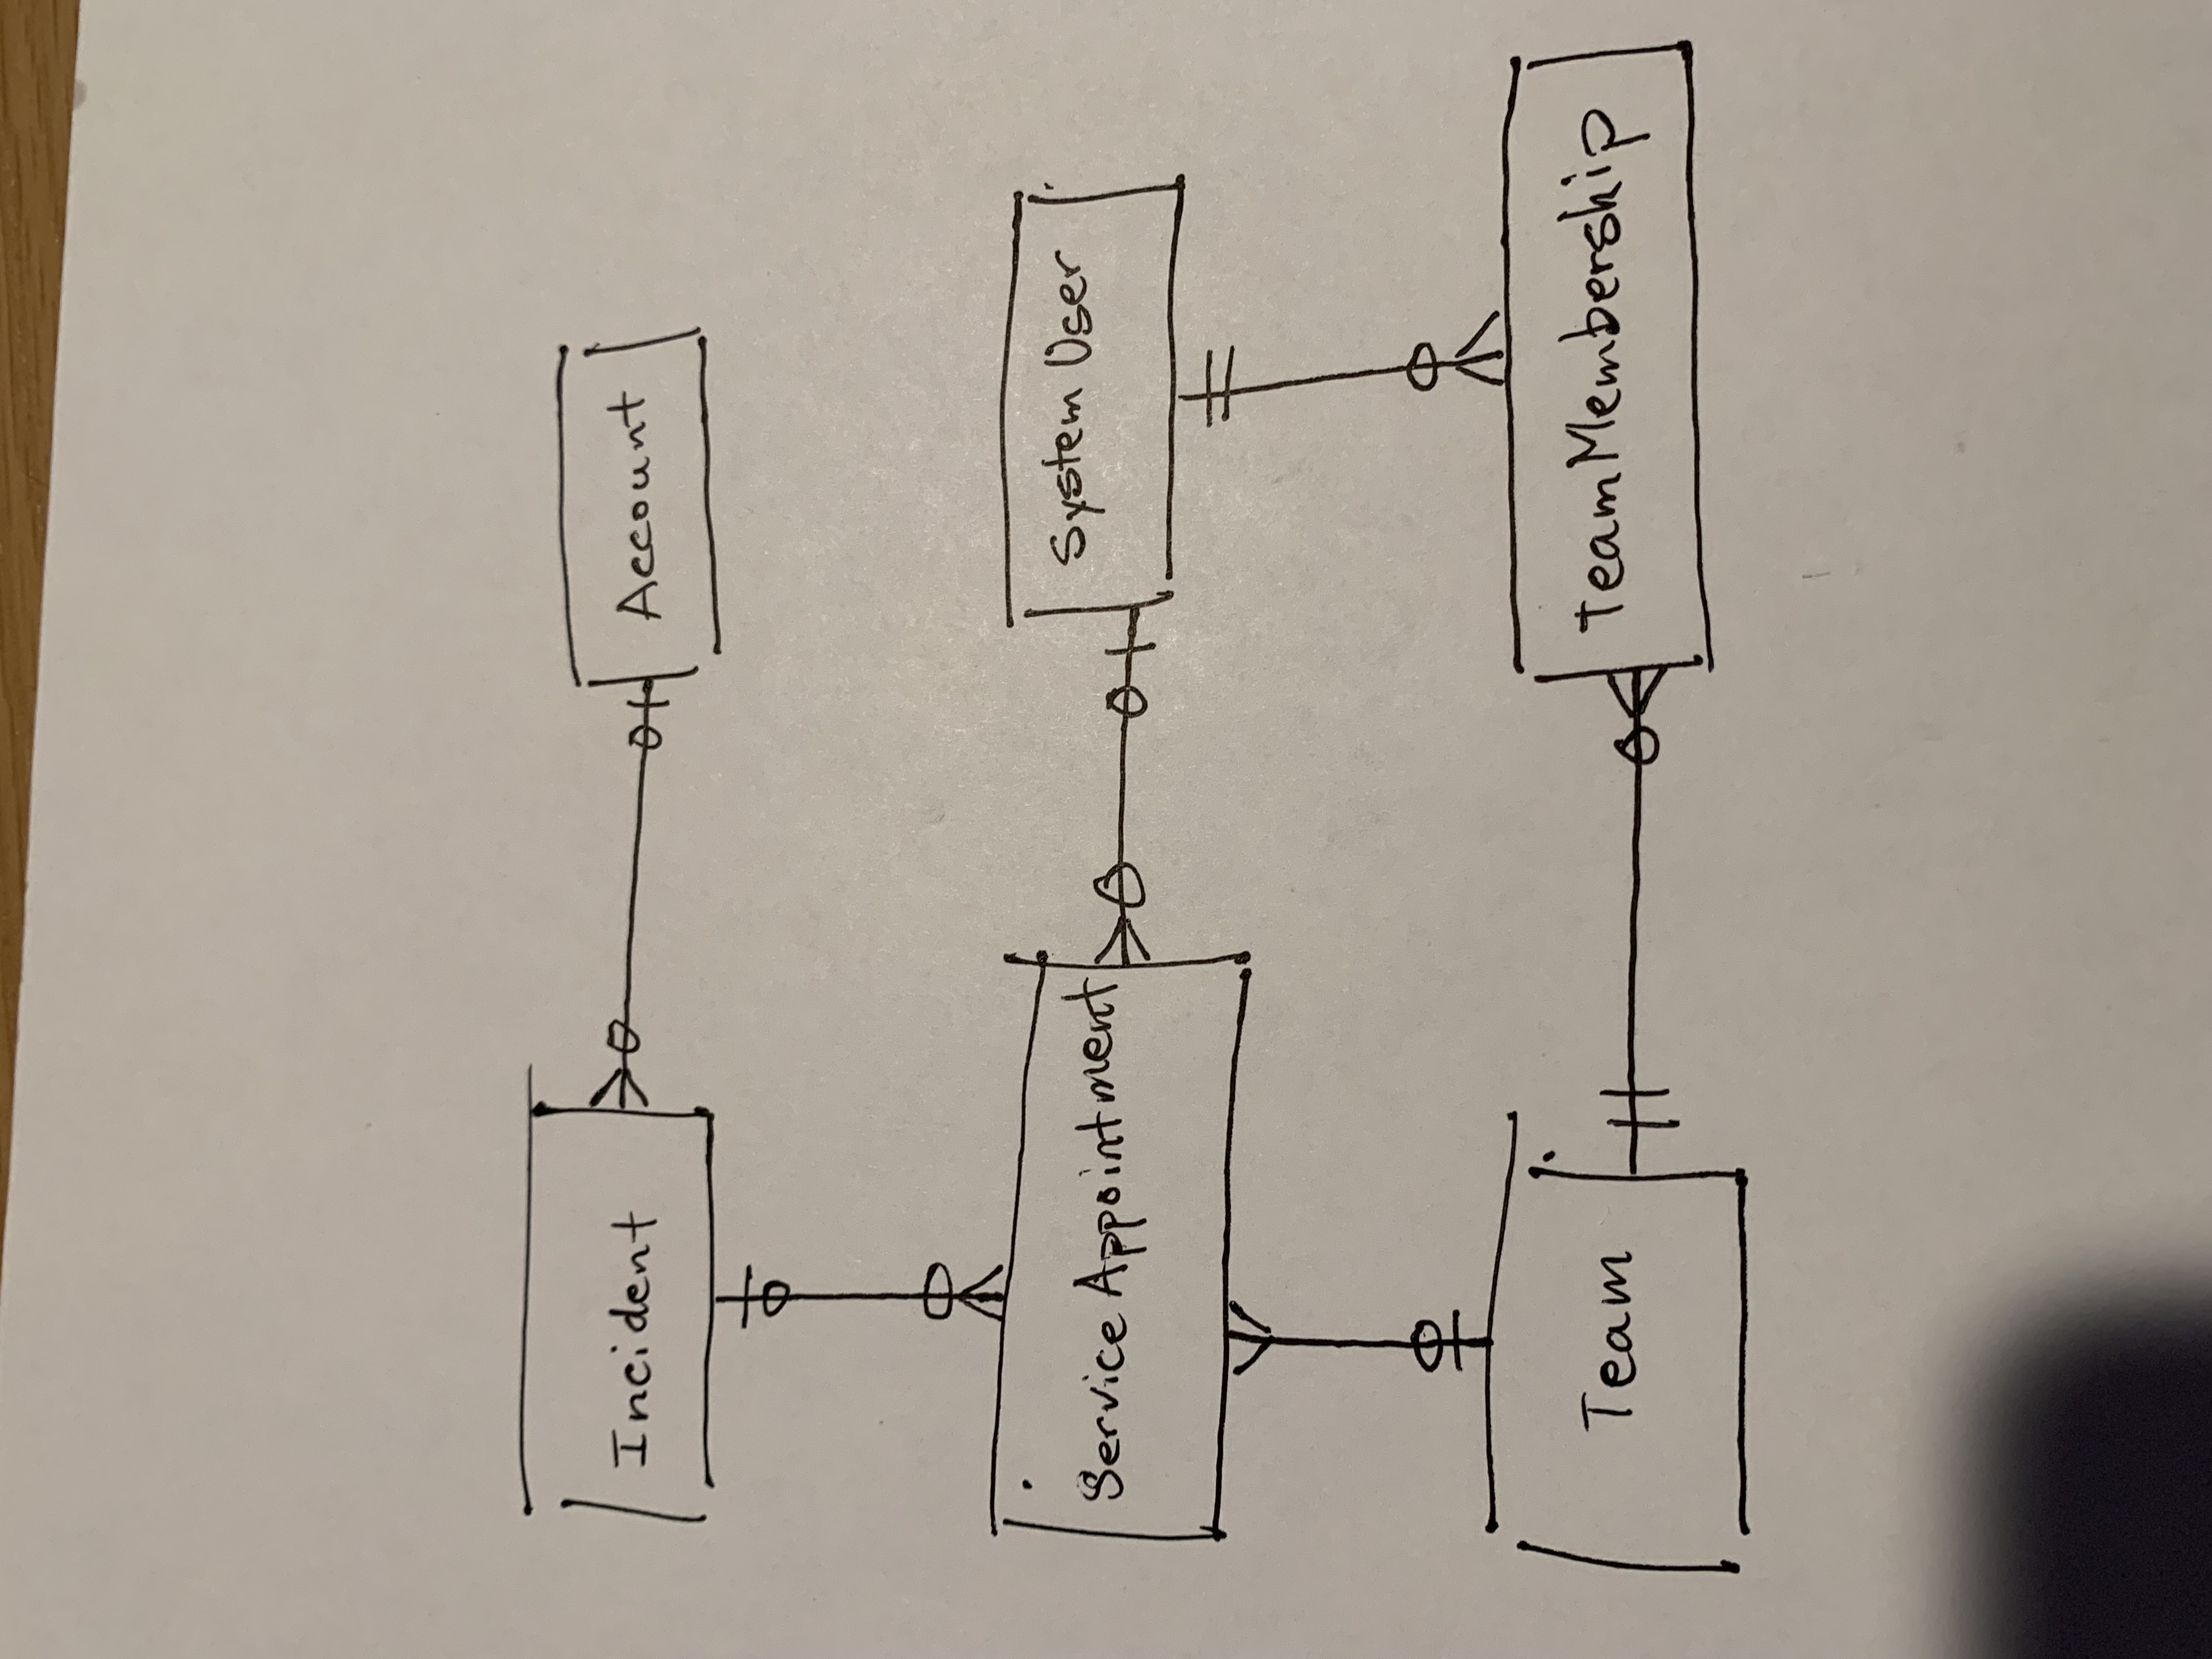 Incident
Account
Service Appointment
System User
Team
TeamMembership